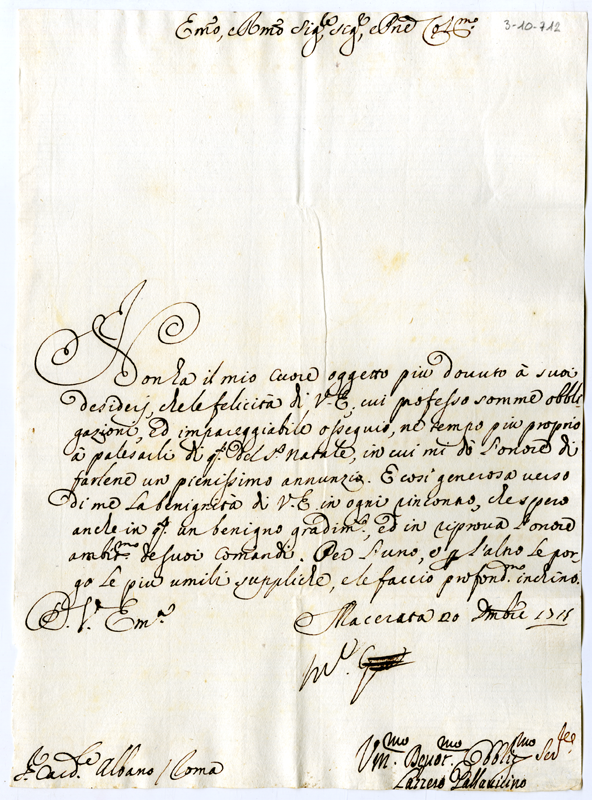 Emo, e Rmo Sigre, sigr, e Prne Colmo
3-10-712
Non ha il mio cuore oggetto più dovuto à suoi
desiderj, che le felicità di V.E. cui professo somme obbli
gazioni, ed impareggiabile osseguio, ne tempo più proprio
à palesarli di qto del Sto Natale, in cui mi dò l'onore di
farlene un pienissimo annunzio. E così generosa verso
di me la benignità di V.E. in ogni rincontro, che spero
anche in qto un benigno gradimto, ed in riprova l'onore
ambitmo de suoi comandi. Per l'uno, e p l'altro le por
go le più umili suppliche, e le faccio profondmo inchino.
D. V. Ema
Macerata 20 Xmbre 1715
Vmmo Devotmo Obbligmo Serre
Lazzero Pallavicino
Sr Cardle Albano / Roma